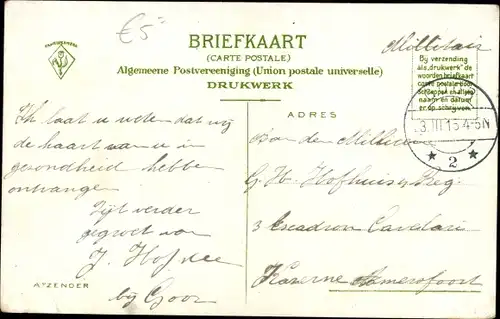 €5-
BRIEFKAART
(CARTE POSTALE)
Algemeene Postvereeniging (Union postale universelle)
DRUKWERK
Militair
Bij verzending
als "drukwerk" de
woorden briefkaart
carte postale door-
schrappen en alleen
naam en datum
er op schrijven
3.III.15 4-5N
2
ADRES
Ik laat u weten dat wij
de kaart van u in
gezondheid hebbe
ontvangen
Zijt verder
gegroet van
J. Hof
bij Goor
AFZENDER
Aan den Militair
G. H. Hofhuis Reg.
3 Escadron Cavalari
Kazerne Amersfoort